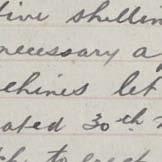 tive shellin
necessary a
chines let
ated 30th